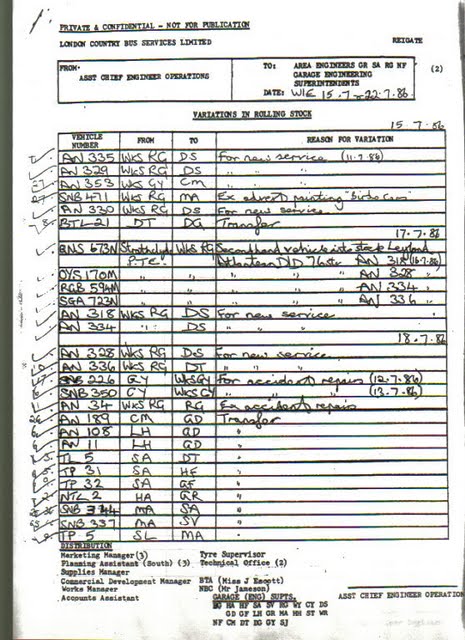 PRIVATE & CONFIDENTIAL - NOT FOR PUBLICATION
LONDON COUNTRY BUS SERVICES LIMITED REIGATE
FROM. TO: AREA ENGINEERS GR SA RG NF (2)
ASST CHIEF ENGINEER OPERATIONS GARAGE ENGINEERING
SUPERINTENDENTS
DATE: W/E 15.7.-22.7.86
VARIATIONS IN ROLLING STOCK
15.7.86
VEHICLE NUMBER FROM TO REASON FOR VARIATION
AN 335 WKS RG DS For new service (11.7.86)
AN 329 WKS RG DS " "
AN 353 WKS GY CM " "
SNB 471 WKS RG MA Ex advert painting
AN 330 WKS RG DS For new service
BTL 21 DT DG Transfer
17.7.86
GNS 673N Strathclyde WKS RG Secondhand vehicle into stock Leyland
P.T.E. Atlantean AN 318 (16.7.86)
OYS 170M " " " AN 328 "
RGB 594M " " " AN 334 "
SGA 723N " " " AN 336 "
AN 318 WKS RG DS For new service
AN 334 " DS " "
18.7.86
AN 328 WKS RG DS For new service
AN 336 WKS RG DT " "
SNB 226 GY WKS GY For accident repairs (12.7.86)
SNB 350 GY WKS GY " " " (13.7.86)
AN 34 WKS RG RG Ex accident repairs
AN 189 CM GD Transfer
AN 108 LH GD "
AN 11 LH GD "
TL 5 SA DT "
TP 31 SA HF "
TP 32 SA GF "
NTL 2 HA GR "
SNB 344 MA SA "
SNB 337 MA SV "
TP 5 SL MA "
DISTRIBUTION
Marketing Manager (3) Tyre Supervisor
Planning Assistant (South) (3) Technical Office (2)
Supplies Manager
Commercial Development Manager BTA (Miss J Escott)
Works Manager NBC (Mr Jameson)
Accounts Assistant GARAGE (ENG) SUPTS. ASST CHIEF ENGINEER OPERATION
BG HA HF SA SV RG WY CY DS
GD GF LH GR MA HH ST WR
NF CM DT DG GY SJ